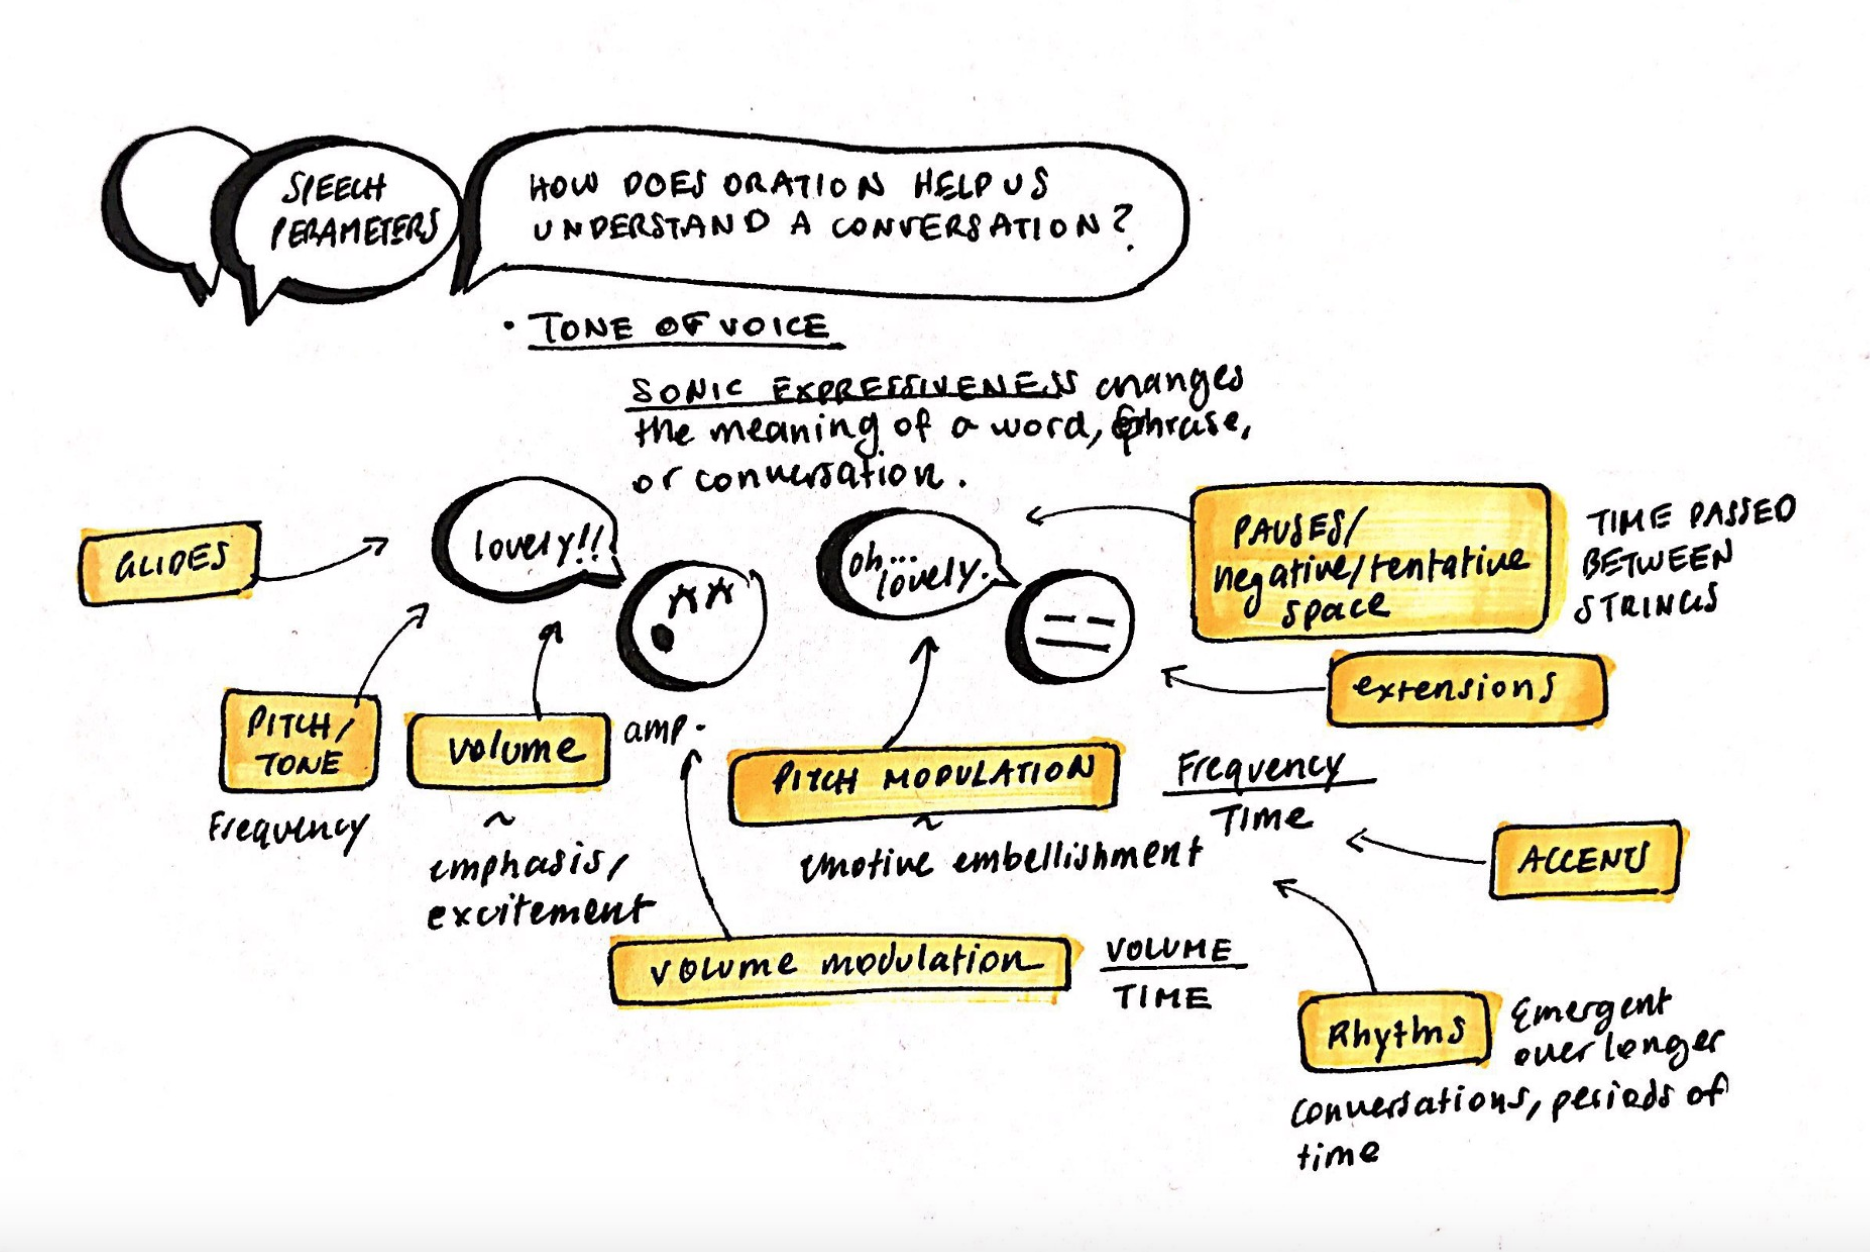 SPEECH
PERAMETERS
HOW DOES ORATION HELP US
UNDERSTAND A CONVERSATION?
• TONE OF VOICE
SONIC EXPRESSIVENESS changes
the meaning of a word, phrase,
or conversation.
GLIDES
lovely!!
oh...
lovely.
PAUSES/
negative/tentative
space
TIME PASSED
BETWEEN
STRINGS
extensions
PITCH/
TONE
Frequency
volume
amp.
~
emphasis/
excitement
PITCH MODULATION
~
emotive embellishment
Frequency
TIME
ACCENTS
volume modulation
VOLUME
TIME
Rhythms
Emergent
over longer
conversations, periods of
time